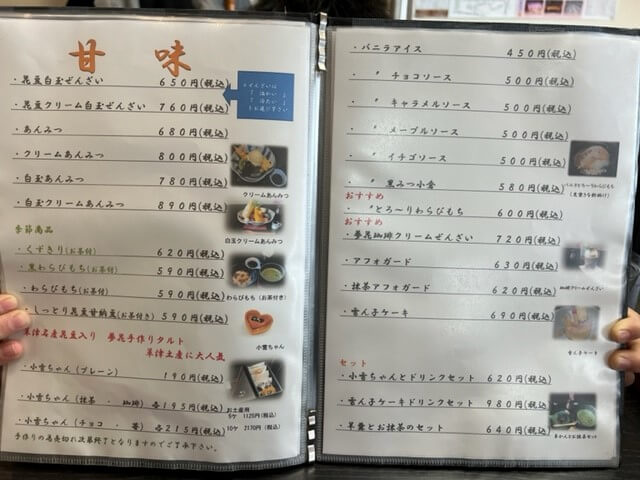 甘味
・花豆白玉ぜんざい 650円(税込)
・花豆クリーム白玉ぜんざい 760円(税込)
※ぜんざいは
「温かい」
「冷たい」
・あんみつ 680円(税込)
・クリームあんみつ 800円(税込)
・白玉あんみつ 780円(税込)
クリームあんみつ
・白玉クリームあんみつ 890円(税込)
白玉クリームあんみつ
季節商品
・くずきり(お茶付) 620円(税込)
・黒わらびもち(お茶付) 590円(税込)
・わらびもち(お茶付) 590円(税込)
わらびもち(お茶付き)
・しっとり花豆甘納豆(お茶付) 590円(税込)
小雪ちゃん
草津名産花豆入り 夢花手作りタルト
草津土産に大人気
・小雪ちゃん(プレーン) 190円(税込)
・小雪ちゃん(抹茶・珈琲)各195円(税込)
・小雪ちゃん(チョコ・苺)各215円(税込)
お土産用
5ケ 1125円(税込)
10ケ 2170円(税込)
手作りの為売切れ次第終了となりますのでご了承下さい。
・バニラアイス 450円(税込)
・〃 チョコソース 500円(税込)
・〃 キャラメルソース 500円(税込)
・〃 メープルソース 500円(税込)
・〃 イチゴソース 500円(税込)
・〃 黒みつ小倉 580円(税込)
おすすめ
・〃とろ〜りわらびもち 600円(税込)
おすすめ
・夢花珈琲クリームぜんざい 720円(税込)
・アフォガード 630円(税込)
・抹茶アフォガード 620円(税込)
珈琲クリームぜんざい
・雪ん子ケーキ 690円(税込)
雪ん子ケーキ
セット
・小雪ちゃんとドリンクセット 620円(税込)
・雪ん子ケーキドリンクセット 980円(税込)
・羊羹とお抹茶のセット 640円(税込)
羊かんとお抹茶セット